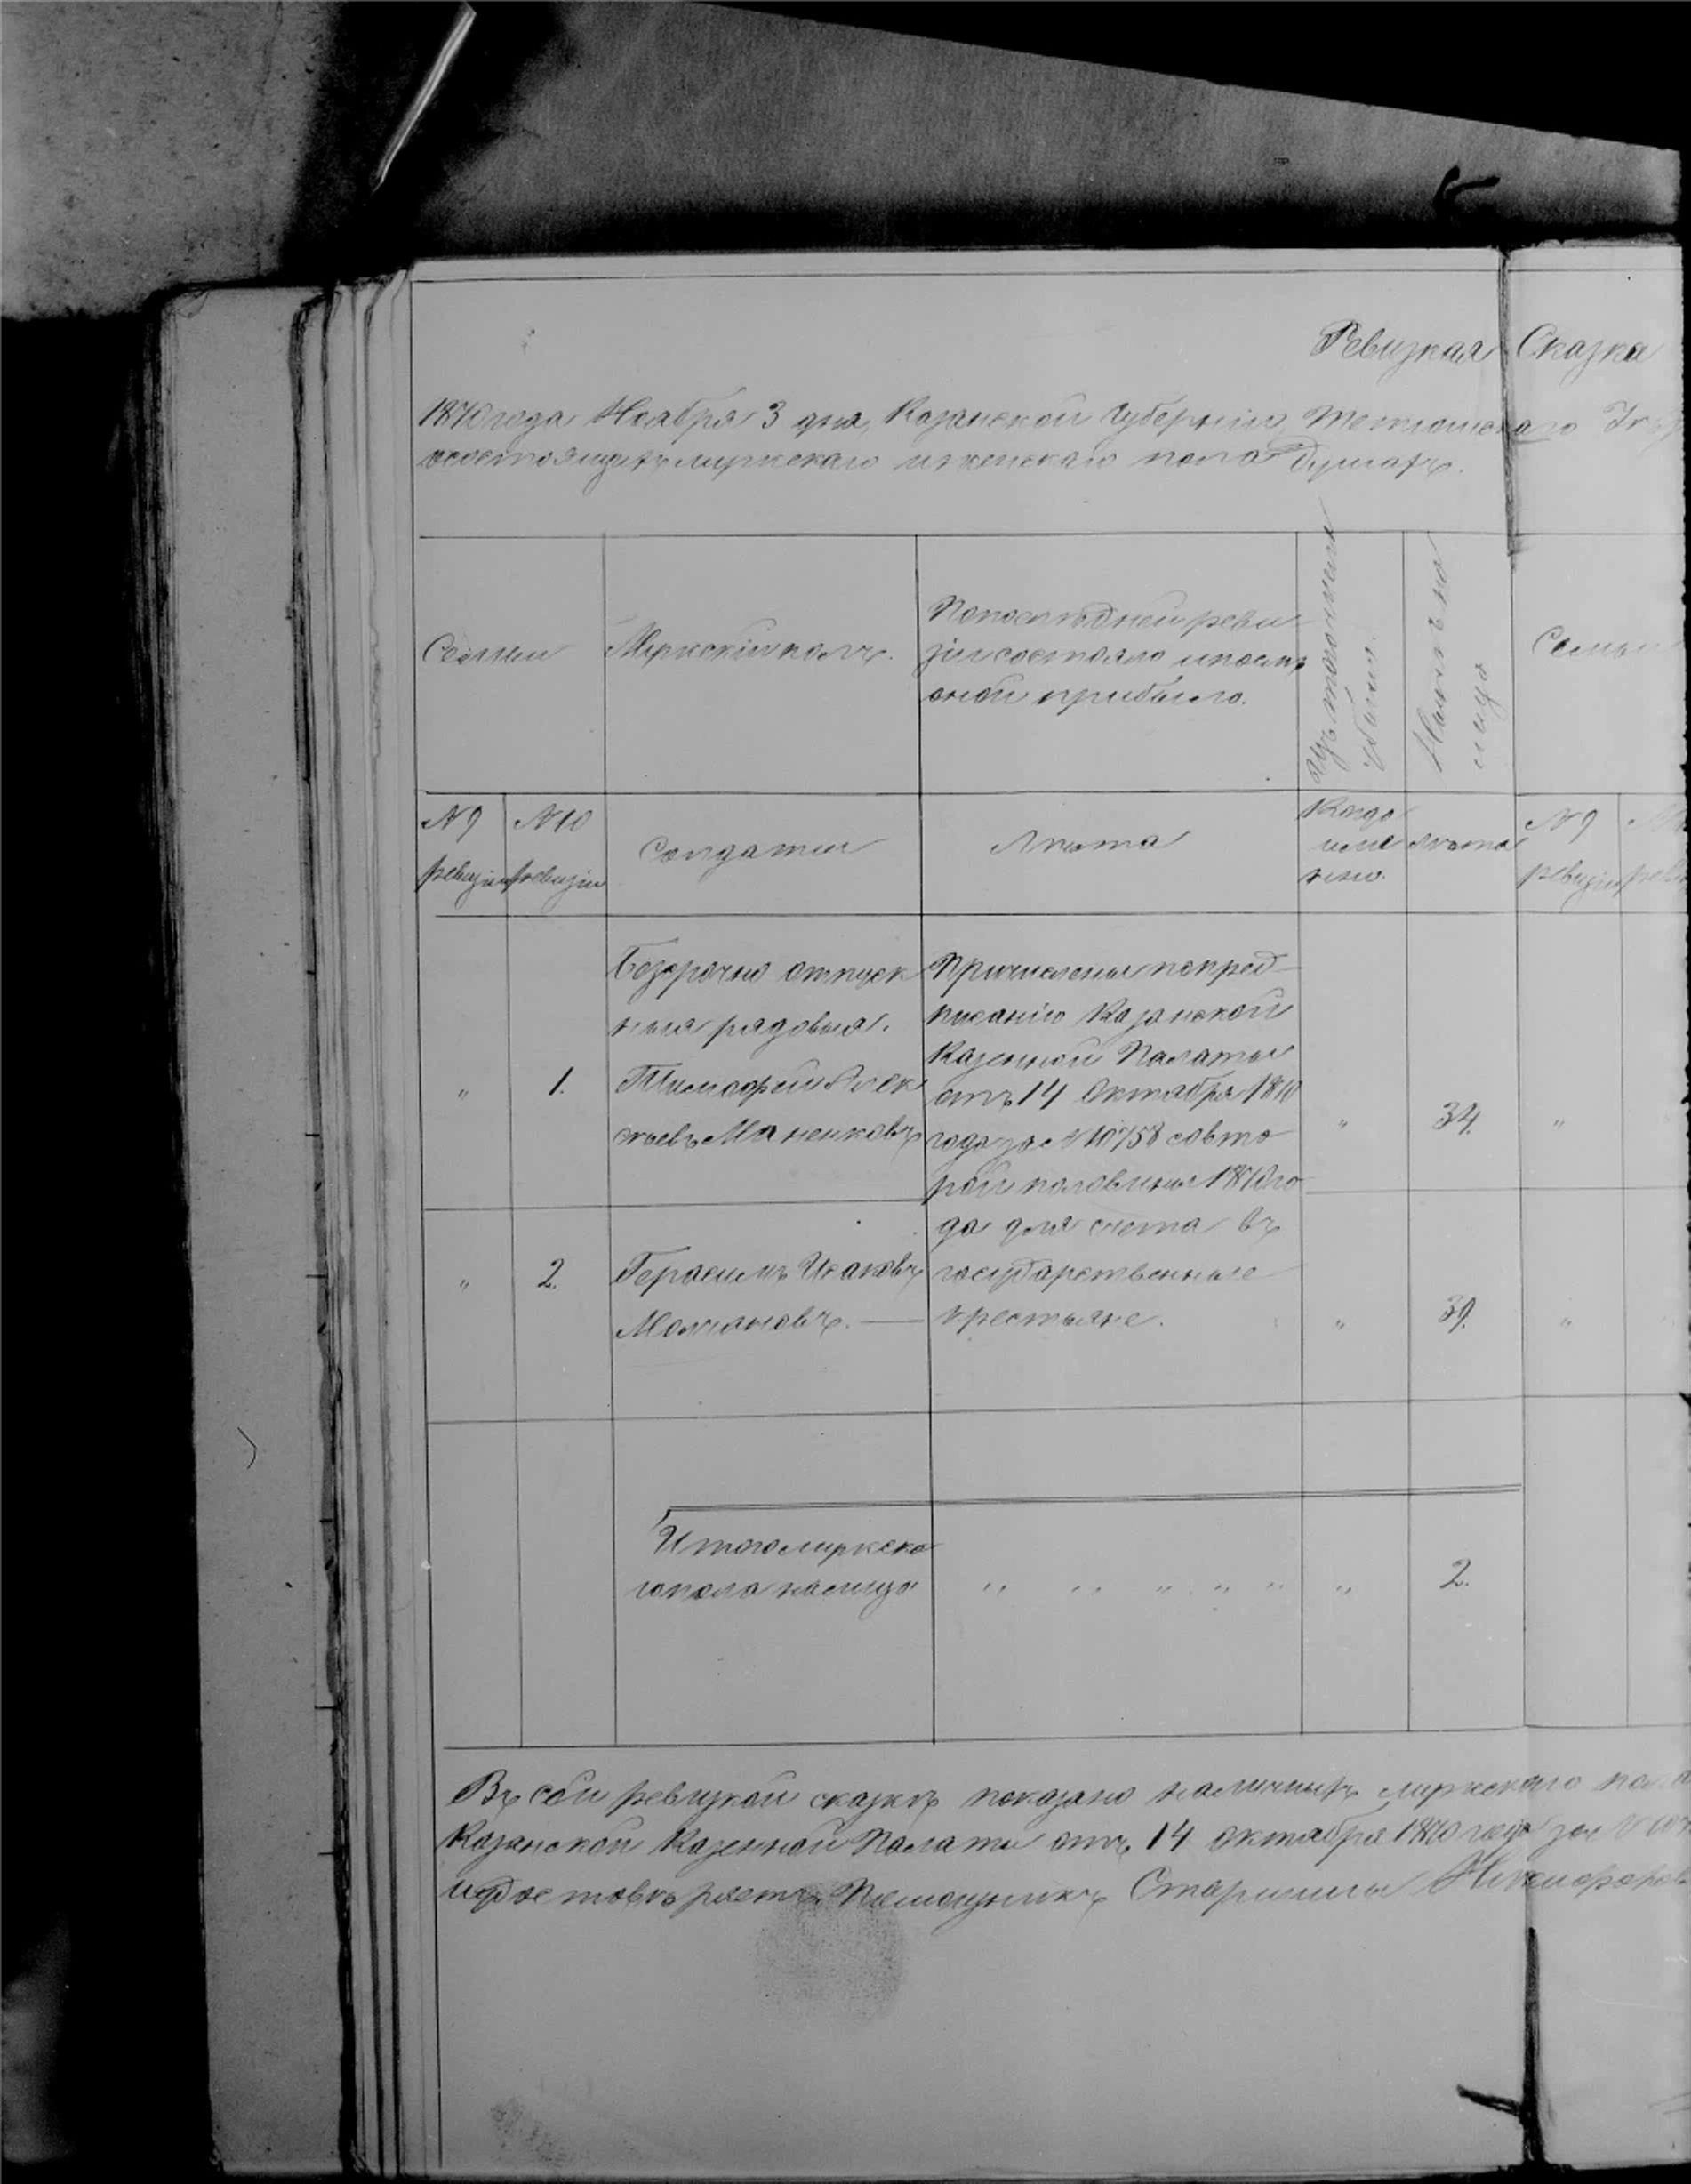 Ревизкая Сказка
1870 года Ноября 3 дня, Казанской Губерніи, Тетюшскаго
осостоящихъ мужскаго и женскаго пола Душахъ.
Семьи
Мужскій полъ.
Попослѣдней реви
зіи состояло ипослѣ
оной прибыло.
Изъ того числа
убыло.
Нынѣ на
лицо
Семьи
№ 9
ревизіи
№ 10
ревизіи
Солдаты
Лѣта
Когда
имя
нно.
лѣта
№ 9
ревизіи
Безсрочно отпуск
ныя рядовыя.
Причислены попред
писанію Казанской
Казенной Палаты
отъ 14 Октября 1870
года за № 10758 совто
рой половины 1870 го
да для счета въ
государственные
крестьяне.
" 1. Тимофей Алек
сѣевъ Маненковъ " 34. "
" 2. Герасимъ Исаковъ
Молчановъ. " 39. "
Итого мужска
гопола налицо " " " " " " 2.
Въ сей ревизкой сказкѣ показано наличныхъ мужскаго пола
Казанской Казенной Палаты отъ 14 октября 1870 года за №
Помощникъ Старшины